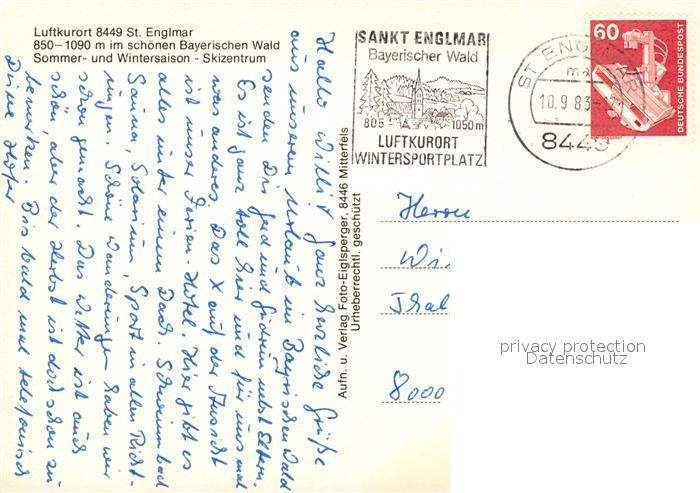 Luftkurort 8449 St. Englmar
850–1090 m im schönen Bayerischen Wald
Sommer- und Wintersaison - Skizentrum
Hallo Willi! Ganz herzliche Grüße
aus unserem Urlaub im Bayrischen Wald
senden Dir Gerd und Gudrun nebst Eltern.
Es ist ganz toll hier und für uns mal
was anderes. Das X auf der Ansicht
ist unser Ferien-Hotel. Hier gibt es
alles unter einem Dach. Schwimmbad
Sauna, Solarium, Sport in allen Richt-
ungen. Schöne Wanderungen haben wir
schon gemacht. Das Wetter ist auch
schön, aber der Herbst ist doch schon zu
bemerken. Bis bald mal telefonisch
Deine
Aufn. u. Verlag Foto-Eiglsperger, 8446 Mitterfels
Urheberrechtl. geschützt
SANKT ENGLMAR
Bayerischer Wald
805 - 1050 m
LUFTKURORT
WINTERSPORTPLATZ
ST ENGLMAR
10.9.83-12
8449
60
DEUTSCHE BUNDESPOST
Herrn
Wi
Thal
8000
privacy protection
Datenschutz